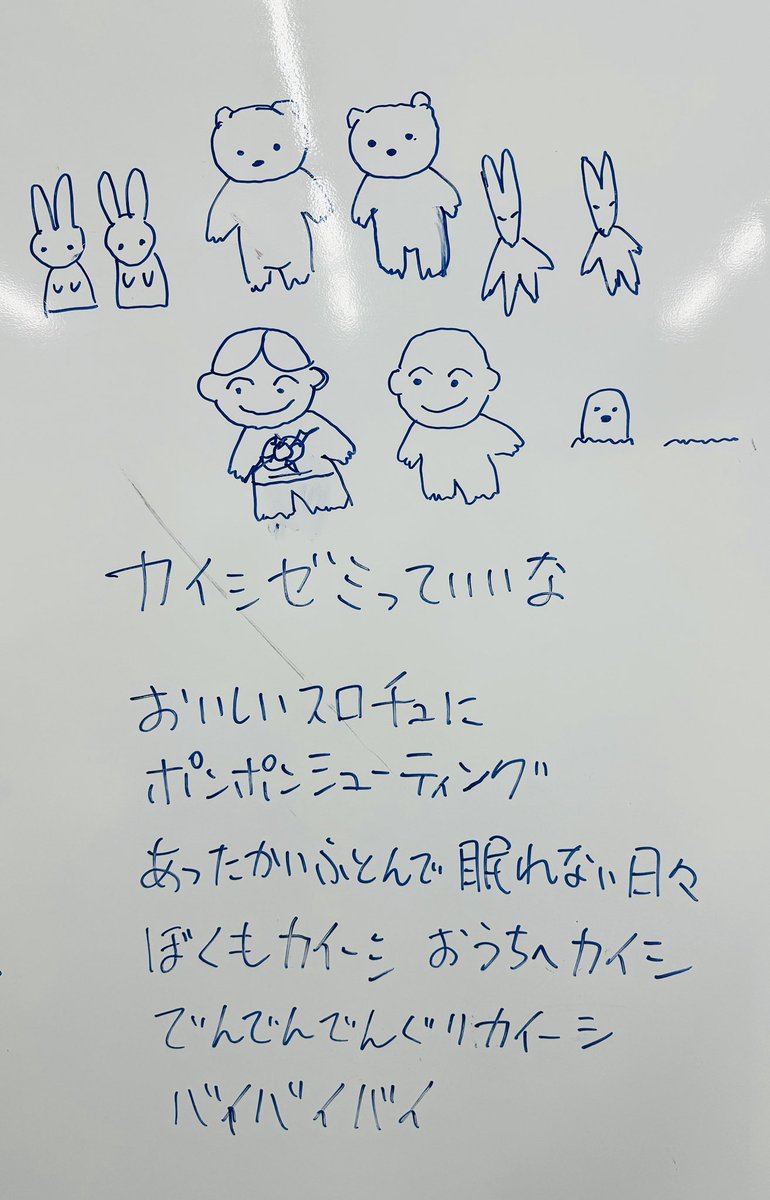 カイシゼミっていいな
おいしいスロチュに
ポンポンミューティング
あったかいふとんで眠れない日々
ぼくもカイーシ おうちへカイシ
でんでんでんぐりカイーシ
バイバイバイ